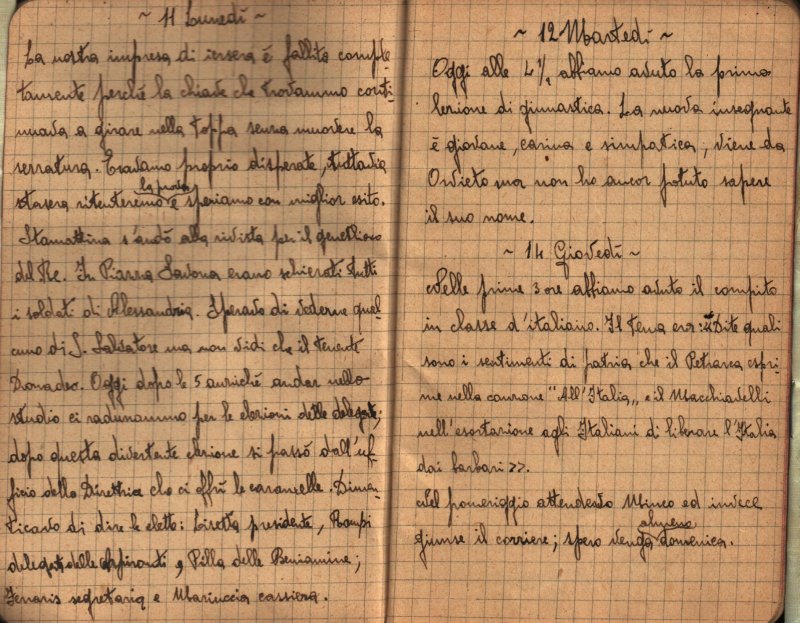 ~ 11 Lunedì ~
La nostra impresa di iersera è fallita comple-
tamente perché la chiave che trovammo conti-
nuava a girare nella toppa senza muovere la
serratura. Eravamo proprio disperate, tuttavia
stasera ritenteremo la prova e speriamo con miglior esito.
Stamattina s'andò alla rivista per il genetliaco
del Re. In Piazza Savona erano schierati tutti
i soldati di Alessandria. Speravo di vederne qual-
cuno di S. Salvatore ma non vidi che il tenente
Donadeo. Oggi dopo le 5 anziché andar nello
studio ci radunammo per le elezioni delle delegate;
dopo questa divertente elezione si passò dall'uf-
ficio della Direttrice che ci offrì le caramelle. Dimen-
ticavo di dire le elette: Lisetta presidente, Rampi
delegata delle Aspiranti e Pilla delle Beniamine;
Ferraris segretaria e Mariuccia cassiera.
~ 12 Martedì ~
Oggi alle 4½ abbiamo avuto la prima
lezione di ginnastica. La nuova insegnante
è giovane, carina e simpatica, viene da
Orvieto ma non ho ancor potuto sapere
il suo nome.
~ 14 Giovedì ~
Nelle prime 3 ore abbiamo avuto il compito
in classe d'italiano. Il tema era: «Dite quali
sono i sentimenti di patria che il Petrarca espri-
me nella canzone "All'Italia„ e il Macchiavelli
nell'esortazione agli Italiani di liberare l'Italia
dai barbari».
Nel pomeriggio attendevo Minco ed invece
giunse il corriere; spero venga almeno domenica.